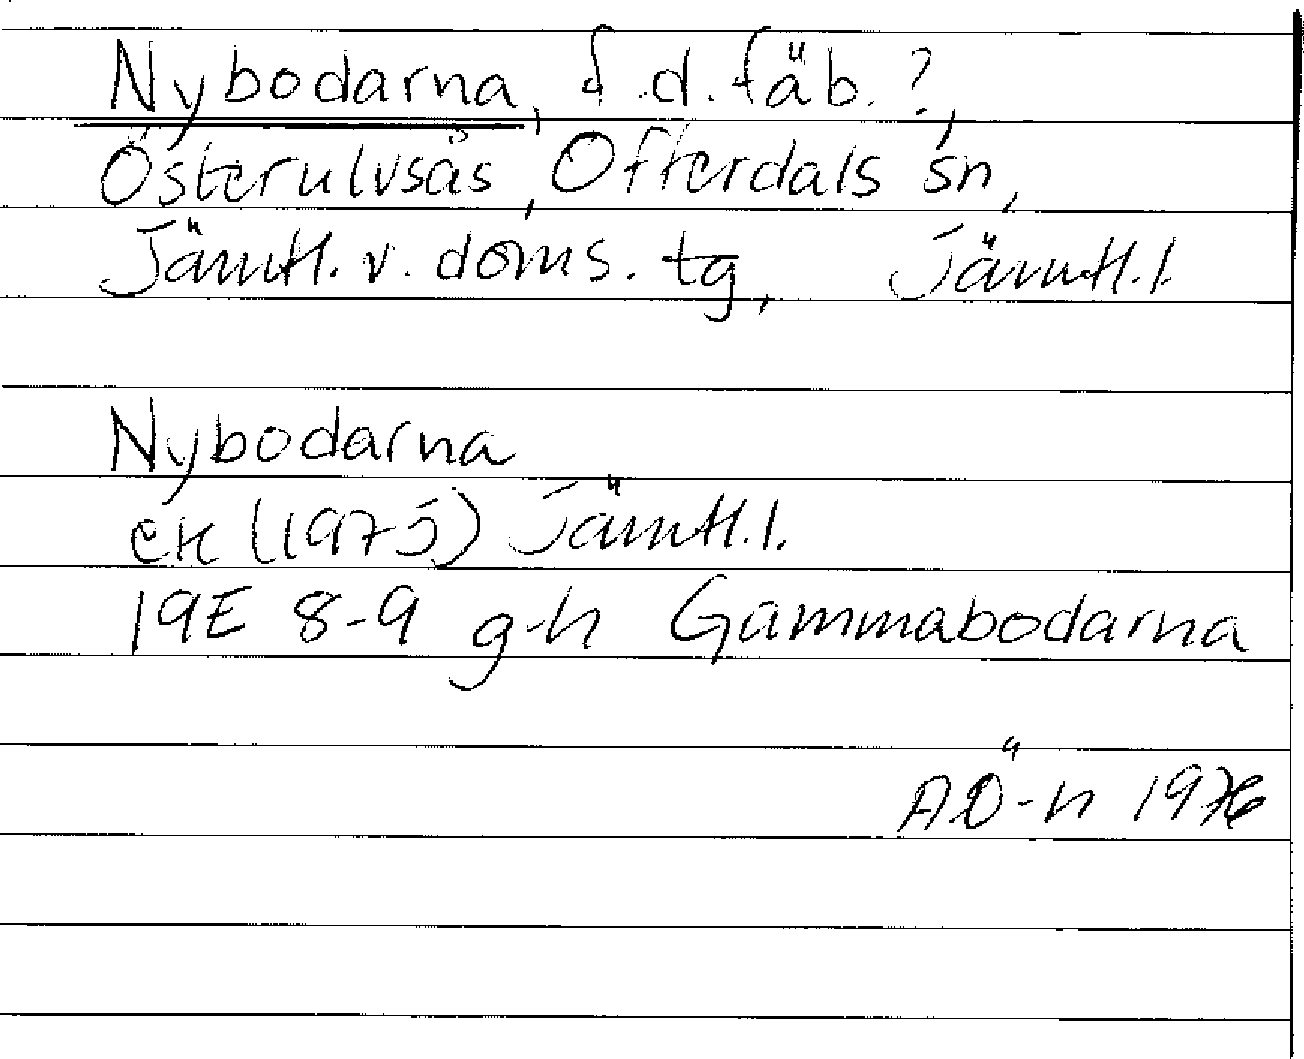 Nybodarna, f.d. fäb.?,
Österulvsås, Offerdals sn,
Jämtl. v. doms. tg, Jämtl. l.
Nybodarna
ek (1975) Jämtl. l.
19E 8-9 g-h Gammabodarna
AÖ-n 1976